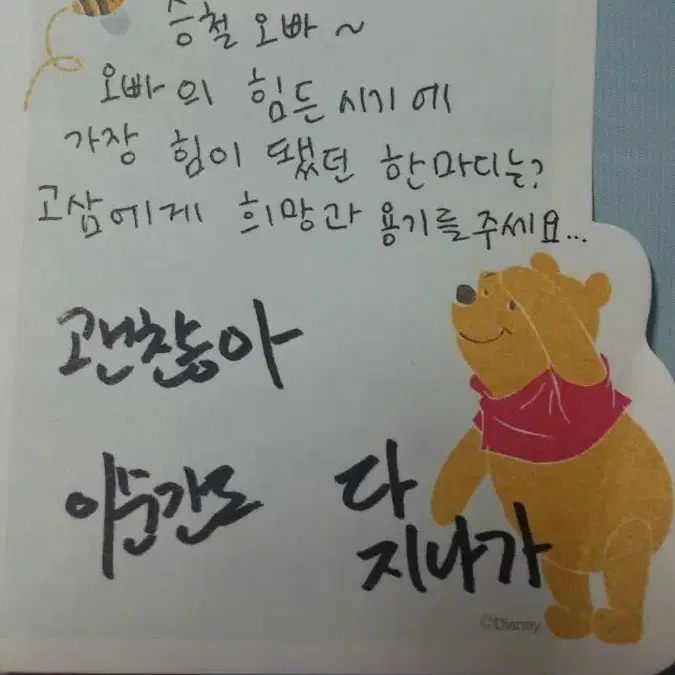 승철 오빠~
오빠의 힘든 시기에
가장 힘이 됐던 한마디는?
고삼에게 희망과 용기를 주세요...
괜찮아
이순간도 다
지나가
©Disney